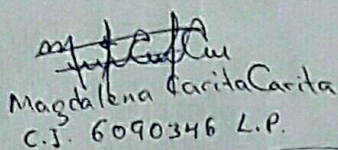 Magdalena Carita Carita
C.I. 6090346 L.P.